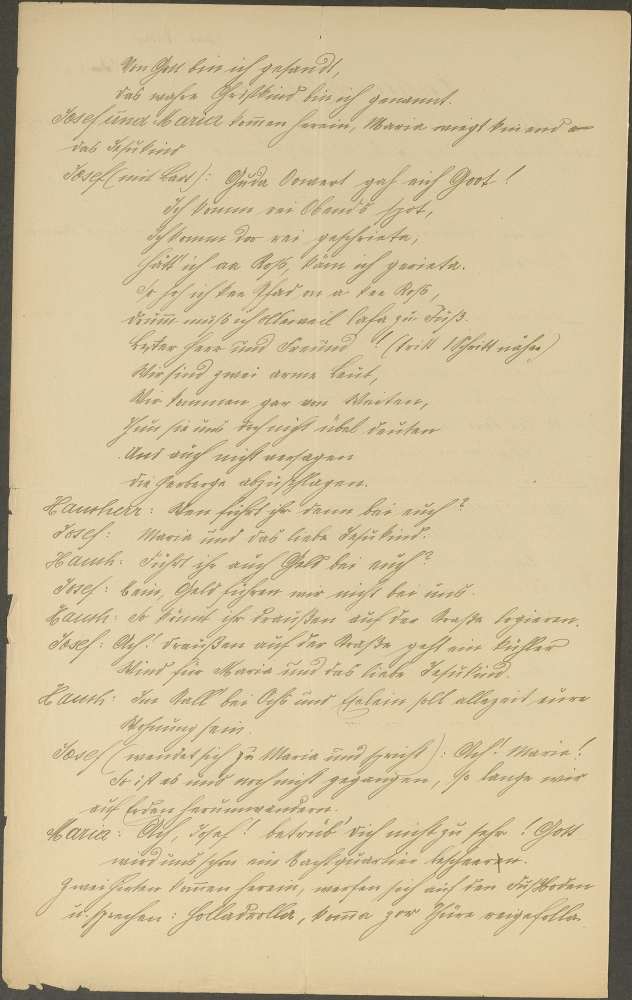 Von Gott bin ich gesandt,
das wahre Christkind bin ich genannt.
Josef und Maria kommen herein, Maria wiegt
das Jesukind
Josef (mit Bart): Guda Owert gah eich Goot!
Ich komm rei Obends spot,
Ich komm do rei geschrieta,
hätt' ich aa Roß, käm ich gerieta.
So hoh ich kee Pfad on a kee Roß,
drumm muß ich ollerweil lafa zu Fuß.
Herr und Freund! (tritt 1 Schritt näher)
Wir sind zwei arme Leut,
Wir kommen gar von Weiten,
Ihr sie uns doch nicht übel deuten
Und auch nicht versagen
die Herberge abzuschlagen.
Hausherr: Wen führt ihr denn bei euch?
Josef: Maria und das liebe Jesukind.
Haush: Führt ihr auch Geld bei euch?
Josef: Nein, Geld führen wir nicht bei uns.
Haush: So könnt ihr draußen auf der Straße logieren.
Josef: Ach! draußen auf der Straße geht ein kühler
Wind für Maria und das liebe Jesukind.
Haush: Im Stall bei Ochs und Eselein soll allezeit eure
Wohnung sein.
Josef (wendet sich zu Maria und spricht): Ach! Maria!
So ist es uns noch nicht gegangen, so lange wir
auf Erden herumwandern.
Maria: Ach, Josef! betrüb' dich nicht zu sehr! Gott
wird uns schon ein Nachtquartier bescheeren.
Zwei Hirten kommen herein, werfen sich auf den Fußboden
u. sprechen: Holladrolla, komma zor Thüre reigefolla.